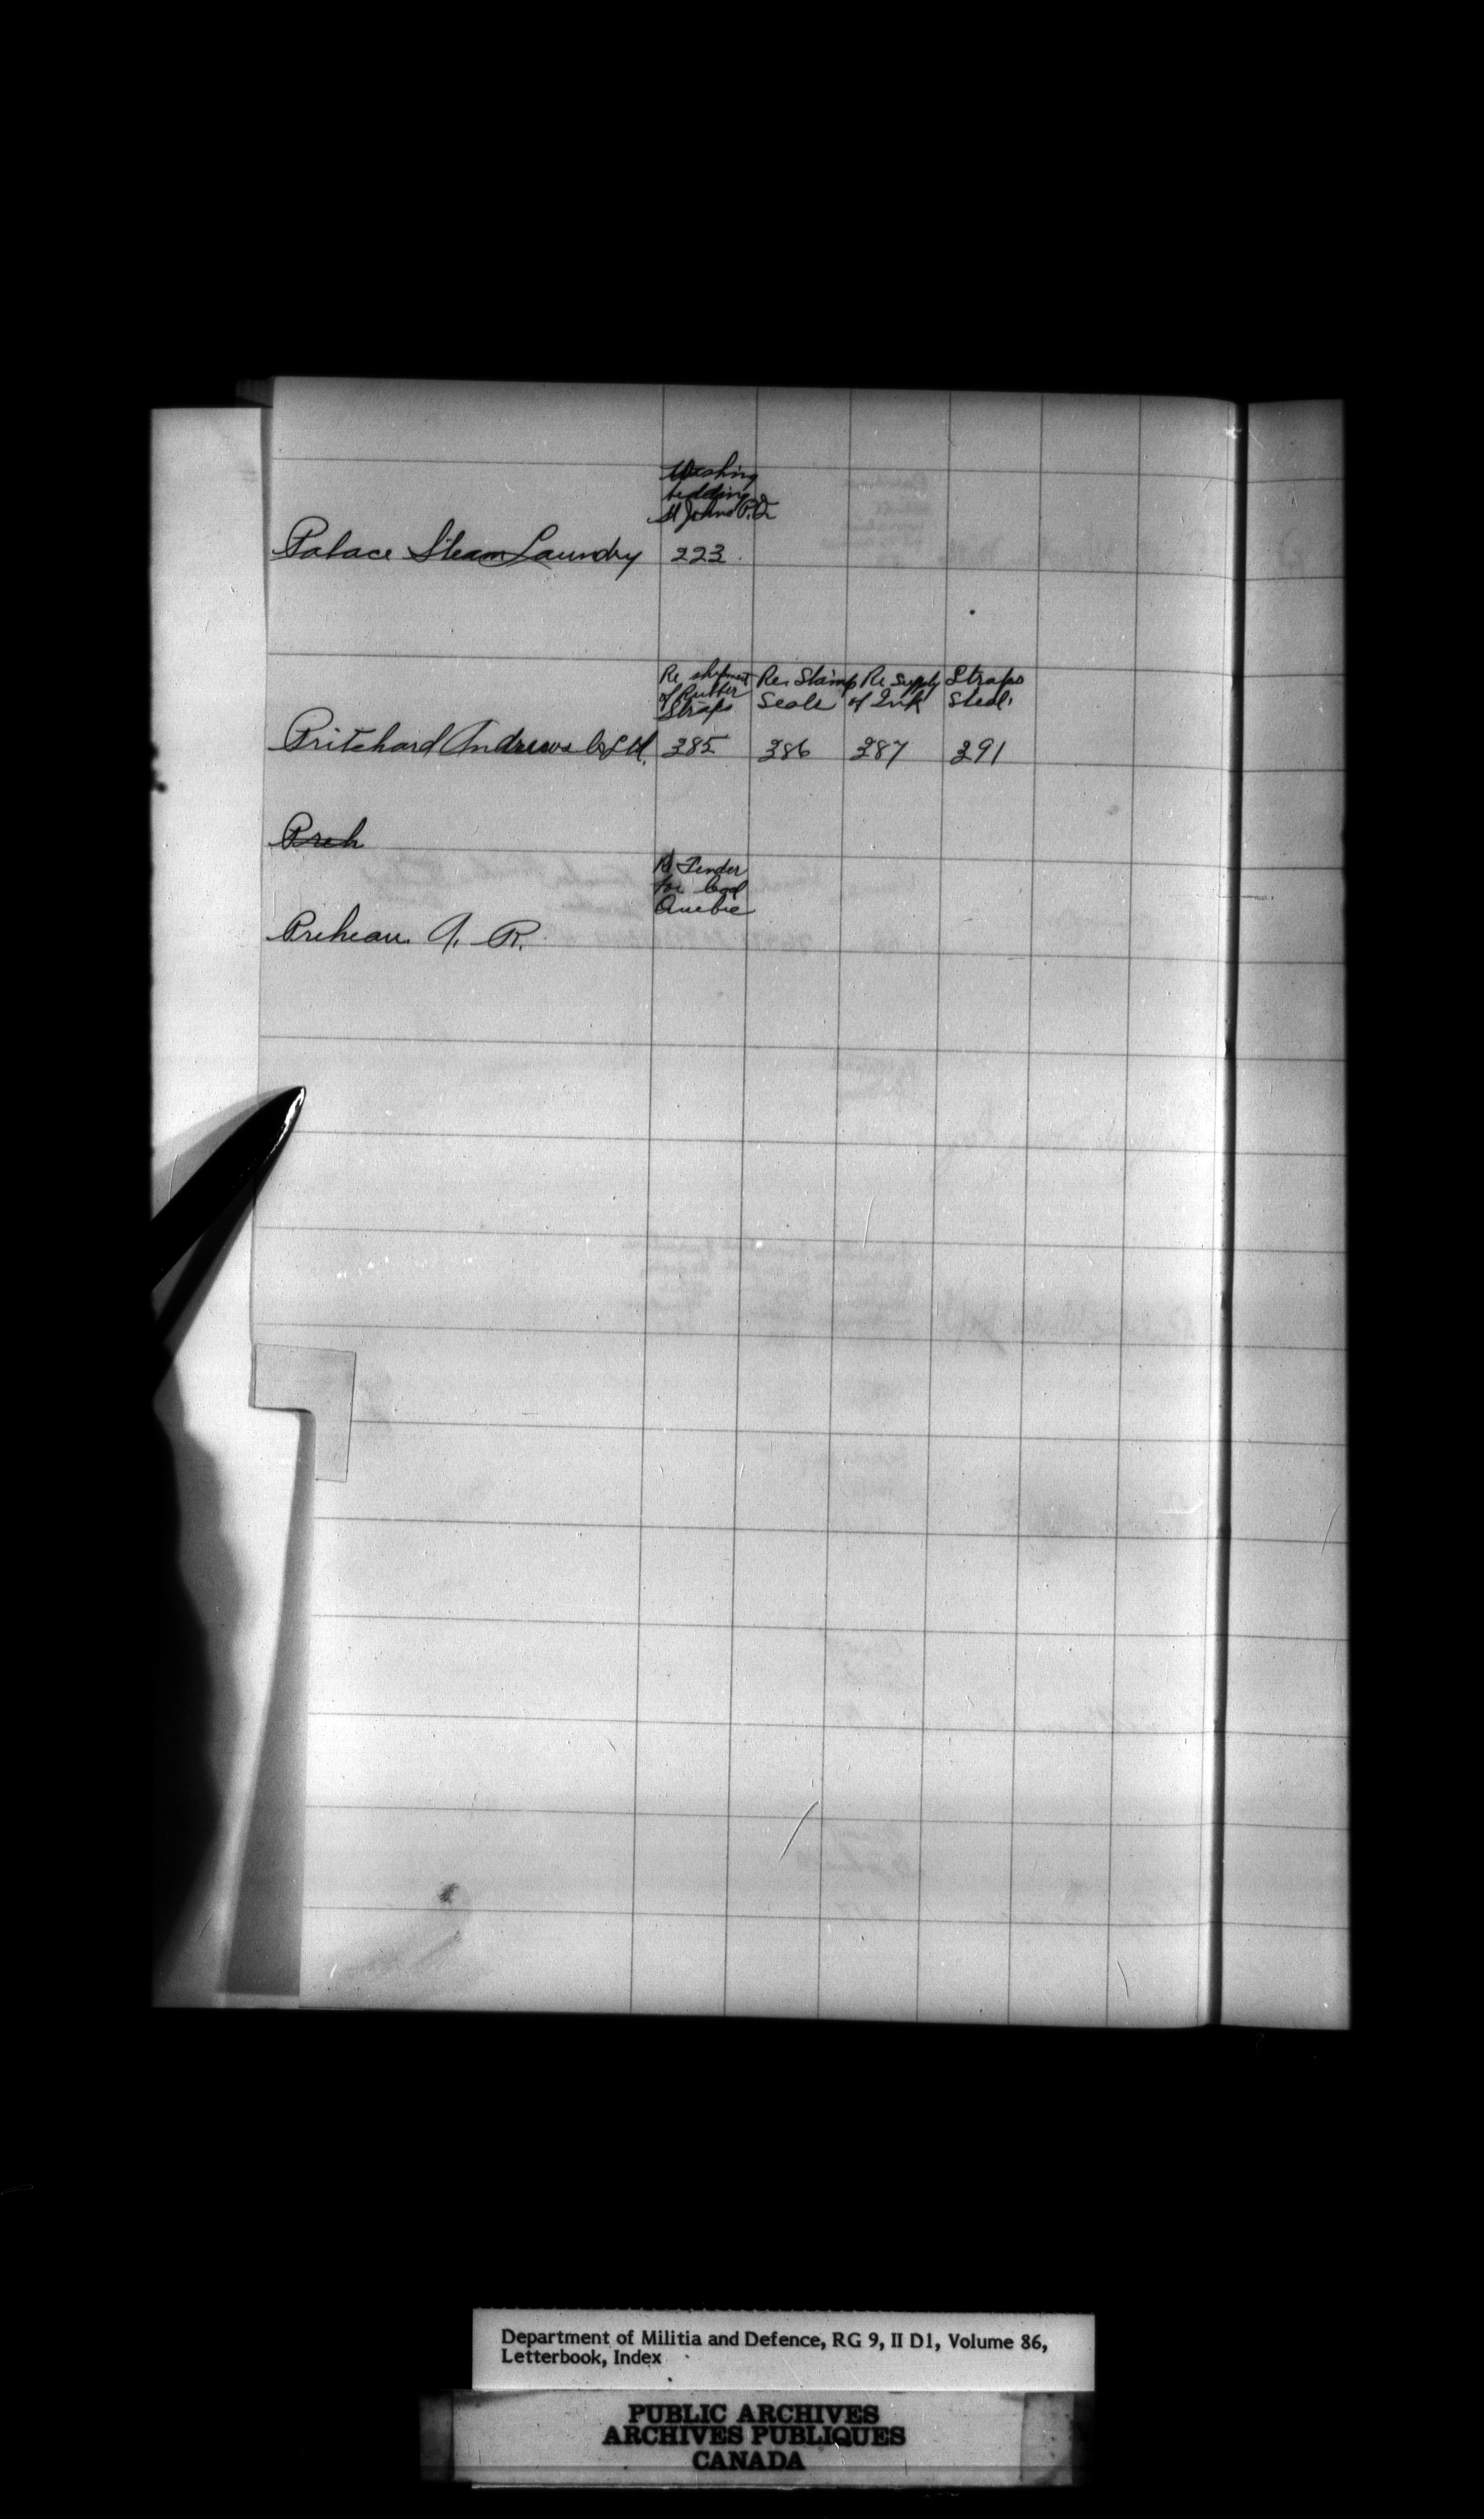 Washing
bedding
St Johns P.Q
Palace Steam Laundry 223
Re shipment Re Stamp Re Supply Straps
of Rubber Seals of Ink Steal.
Straps
Pritchard Andrews Co Ltd. 285 286 287 291
Preh
Re Tender
for Coal
Quebec
Preheau. A. R.
Department of Militia and Defence, RG 9, II D1, Volume 86,
Letterbook, Index
PUBLIC ARCHIVES
ARCHIVES PUBLIQUES
CANADA